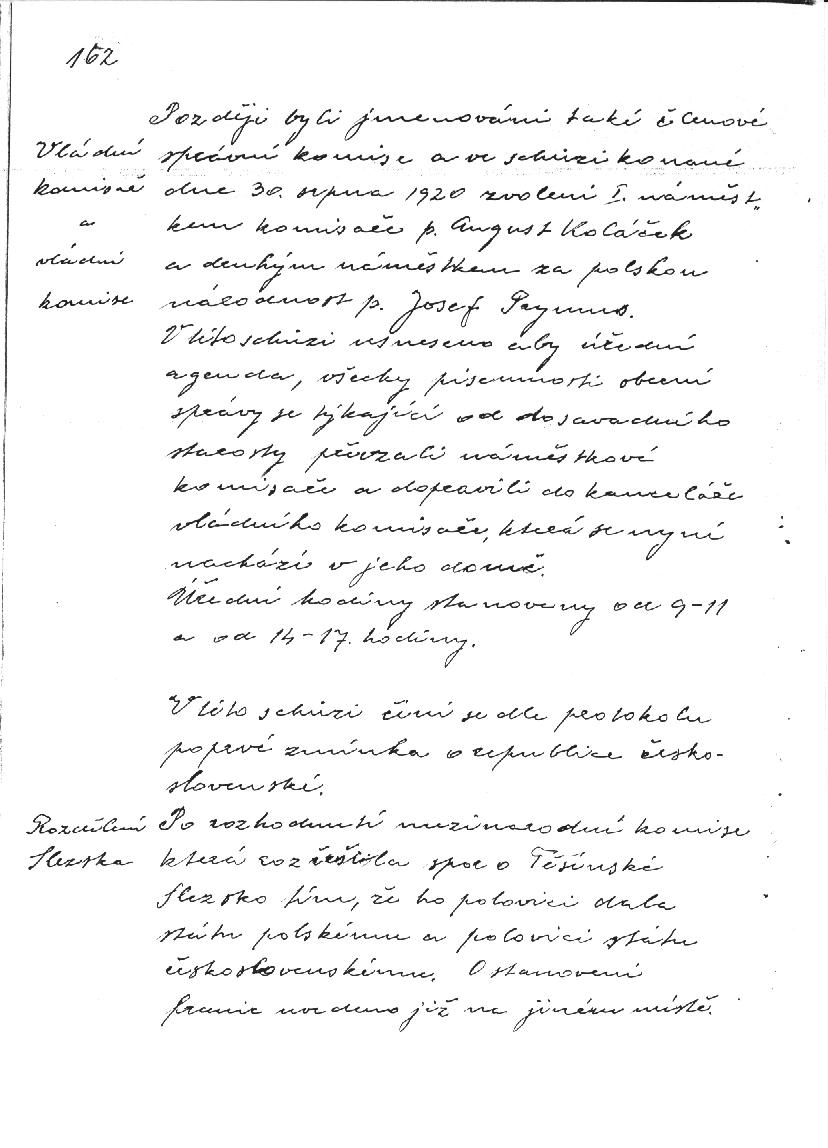 162
Později byli jmenováni také členové
Vládní
komisař
a
vládní
komise
správní komise a ve schůzi konané
dne 30. srpna 1920 zvoleni I. náměst„
kem komisaře p. August Koláček
a druhým náměstkem za polskou
národnost p. Josef Prymus.
V této schůzi usneseno aby úřední
agenda, všecky písemnosti obecní
správy se týkající od dosavadního
starosty převzali náměstkové
komisaře a dopravili do kanceláře
vládního komisaře, která se nyní
nachází v jeho domě.
Úřední hodiny stanoveny od 9-11
a od 14-17. hodiny.
V této schůzi činí se dle protokolu
poprvé zmínka o republice česko-
slovenské.
Rozdělení
Slezska
Po rozhodnutí mezinárodní komise
která rozřešila spor o Těšínské
Slezsko tím, že ho polovici dala
státu polskému a polovici státu
československému. O stanovení
hranic uvedeno již na jiném místě.